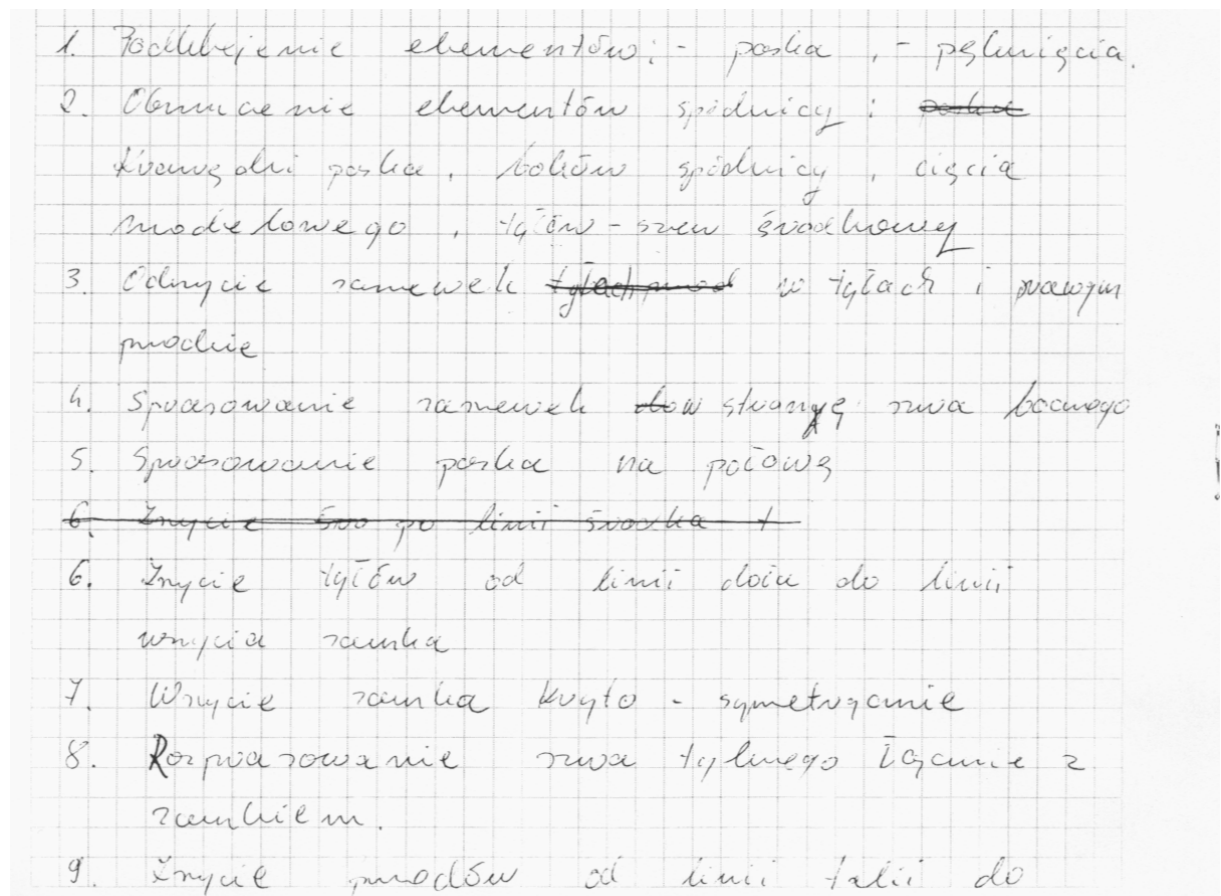 1. Podklejenie elementów: - paska, - pęknięcia.
2. Obrzucenie elementów spódnicy: paska
Krawędki paska, boków spódnicy, cięcia
modelowego, tyłów - szew środkowy
3. Odszycie zaszewek tyłach przod w tyłach i prawym
przodzie
4. Sprasowanie zaszewek do w stronę szwa bocznego
5. Sprasowanie paska na połowę
6. Zszycie śro po linii środka t
6. Zszycie tyłów od linii dołu do linii
wszycia zamka
7. Wszycie zamka kryto - symetrycznie
8. Rozprasowanie szwa tylnego łącznie z
zamkiem.
9. Zszycie przodów od linii talii do